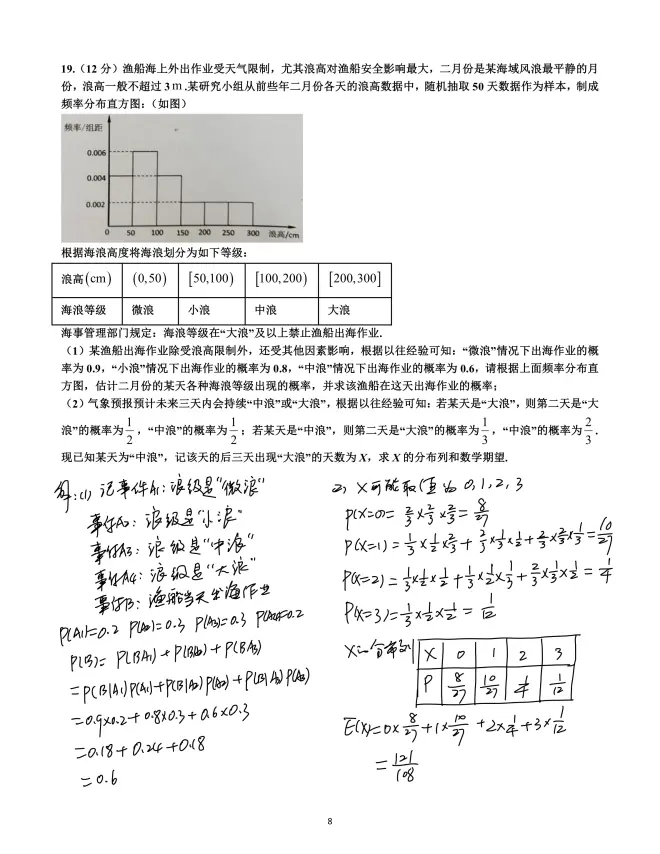 19.（12 分）渔船海上外出作业受天气限制，尤其浪高对渔船安全影响最大，二月份是某海域风浪最平静的月
份，浪高一般不超过 3 m .某研究小组从前些年二月份各天的浪高数据中，随机抽取 50 天数据作为样本，制成
频率分布直方图：（如图）
频率/组距
0.006
0.004
0.002
0 50 100 150 200 250 300 浪高/cm
根据海浪高度将海浪划分为如下等级：
浪高(cm) (0,50) [50,100) [100,200) [200,300]
海浪等级 微浪 小浪 中浪 大浪
海事管理部门规定：海浪等级在“大浪”及以上禁止渔船出海作业.
（1）某渔船出海作业除受浪高限制外，还受其他因素影响，根据以往经验可知：“微浪”情况下出海作业的概
率为 0.9，“小浪”情况下出海作业的概率为 0.8，“中浪”情况下出海作业的概率为 0.6，请根据上面频率分布直
方图，估计二月份的某天各种海浪等级出现的概率，并求该渔船在这天出海作业的概率；
（2）气象预报预计未来三天内会持续“中浪”或“大浪”，根据以往经验可知：若某天是“大浪”，则第二天是“大
浪”的概率为 1/2，“中浪”的概率为 1/2；若某天是“中浪”，则第二天是“大浪”的概率为 1/3，“中浪”的概率为 2/3.
现已知某天为“中浪”，记该天的后三天出现“大浪”的天数为 X，求 X 的分布列和数学期望.
解:(1) 记事件A1: 浪级是“微浪”
事件A2: 浪级是“小浪”
事件A3: 浪级是“中浪”
事件A4: 浪级是“大浪”
事件B: 渔船当天出海作业
P(A1)=0.2 P(A2)=0.3 P(A3)=0.3 P(A4)=0.2
P(B)= P(BA1)+P(BA2)+P(BA3)
=P(B|A1)P(A1)+P(B|A2)P(A2)+P(B|A3)P(A3)
=0.9×0.2+0.8×0.3+0.6×0.3
=0.18+0.24+0.18
=0.6
2) X可能取值为 0,1,2,3
P(X=0)= 2/3×2/3×2/3= 8/27
P(X=1)= 1/3×1/2×2/3+2/3×1/3×1/2+2/3×2/3×1/3=10/27
P(X=2)=1/3×1/2×1/2+1/3×1/2×1/3+2/3×1/3×1/2=1/4
P(X=3)=1/3×1/2×1/2=1/12
X的分布列
X 0 1 2 3
P 8/27 10/27 1/4 1/12
E(X)=0×8/27+1×10/27+2×1/4+3×1/12
=121/108
8